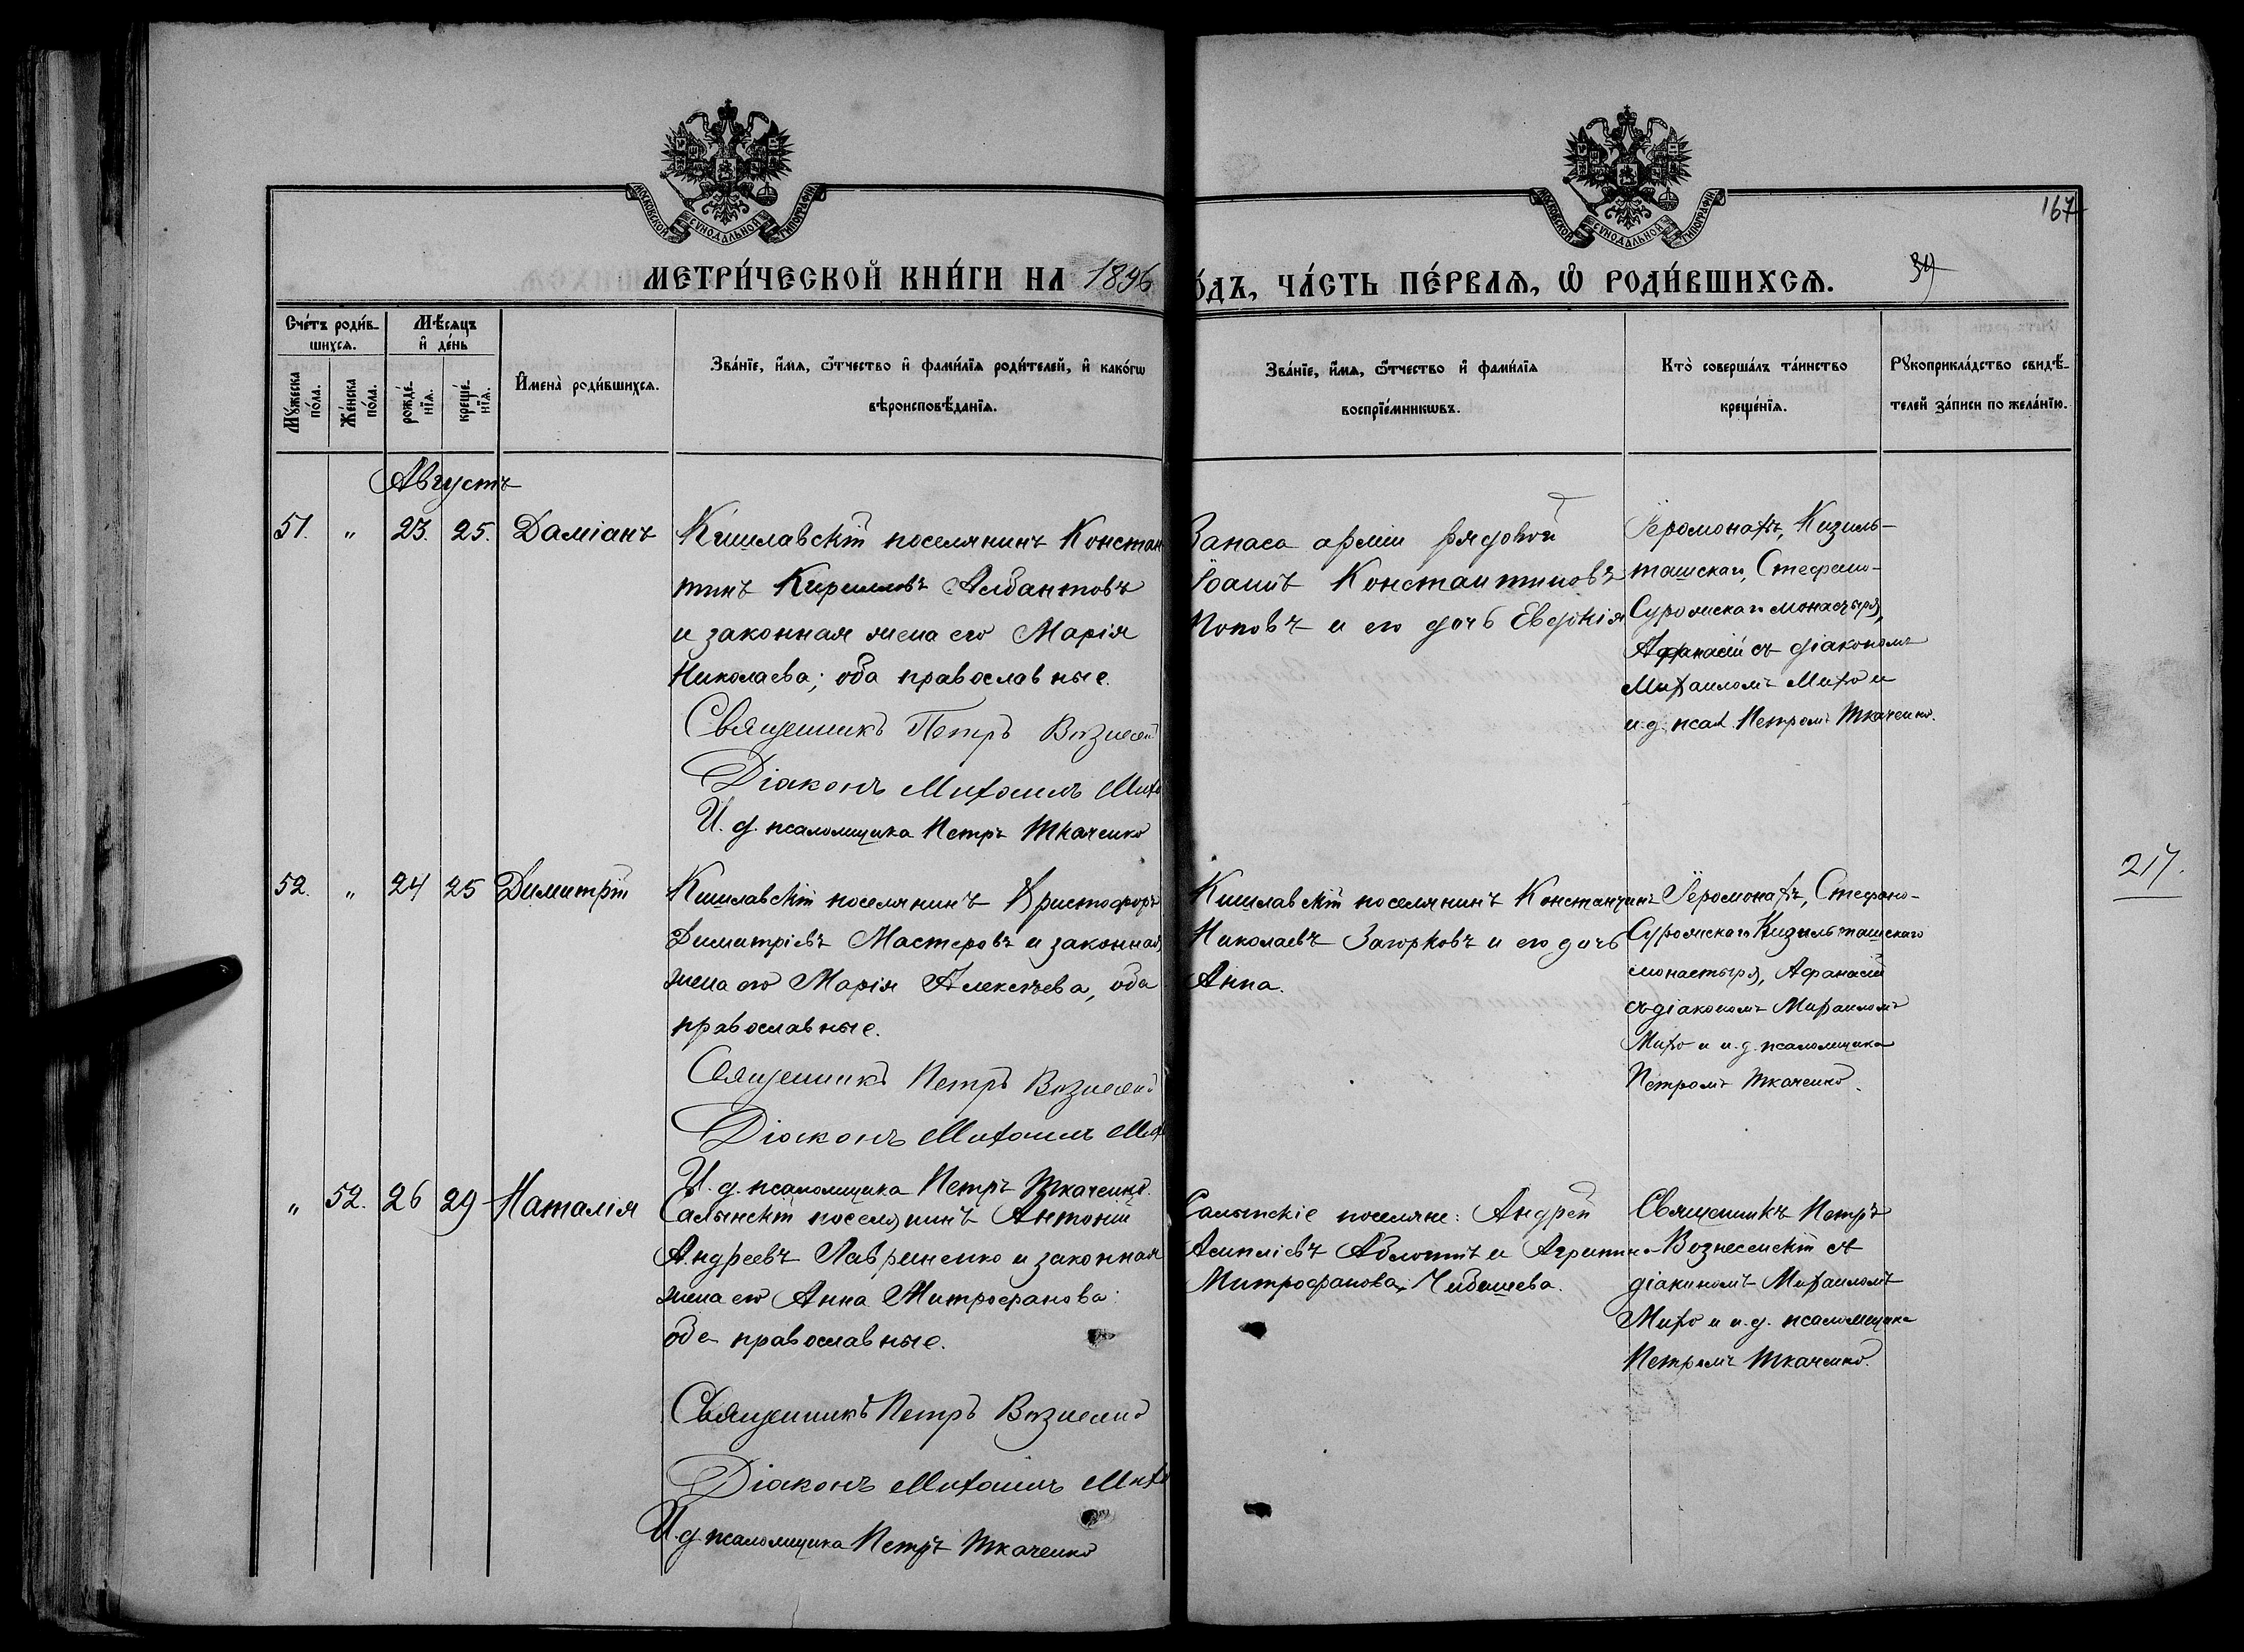 МОСКОВСКОЙ СУНОДАЛЬНОЙ ТИПОГРАФІИ
МОСКОВСКОЙ СУНОДАЛЬНОЙ ТИПОГРАФІИ
167
39
МЕТРИ́ЧЕСКОЙ КНИ́ГИ НА 1896
О́ДЪ, ЧА́СТЬ ПЕ́РВАѦ, Ѡ҆ РОДИ́ВШИХСѦ.
Сче́тъ роди́в-
шихсѧ.
Мѣ́сѧцъ
и҆ де́нь
Мꙋ́жеска
по́ла.
Же́нска
по́ла.
рожде́-
нїѧ.
креще́-
нїѧ.
И҆мена̀ роди́вшихсѧ.
Зва́нїе, и҆́мѧ, ѻ҆́тчество и҆ фами́лїѧ роди́телей, и҆ како́гѡ
вѣроисповѣ́данїѧ.
Зва́нїе, и҆́мѧ, ѻ҆́тчество и҆ фами́лїѧ
воспрїе́мникѡвъ.
Кто̀ соверша́лъ та́инство
креще́нїѧ.
Рꙋкоприкла́дство свидѣ́-
телей за́писи по жела́нїю.
Августъ
51. " 23. 25. Даміанъ
Кишлавскій поселянинъ Констан
тинъ Кирилловъ Албантовъ
и законная жена его Марія
Николаева; оба православные.
Священникъ Петръ Вознесен
Діаконъ Михаилъ Михо
И. д. псаломщика Петръ Ткаченко
Запаса арміи рядовой
Іоаннъ Константиновъ
Поповъ и его дочь Евдокія
Іеромонахъ, Кизиль-
ташскаго, Стефано-
Сурожскаго монастыря,
Афанасій съ діакономъ
Михаиломъ Михо и
и. д. псал. Петромъ Ткаченко.
52. " 24 25 Димитрій
Кишлавскій поселянинъ Христофоръ
Димитріевъ Мастеровъ и законная
жена его Марія Алексѣева, оба
православные.
Священникъ Петръ Вознесен
Діаконъ Михаилъ Михо
И. д. псаломщика Петръ Ткаченко.
Кишлавскій поселянинъ Константинъ
Николаевъ Загорковъ и его дочь
Анна.
Іеромонахъ, Стефано-
Сурожскаго Кизильташскаго
монастыря, Афанасій
съ діакономъ Михаиломъ
Михо и и. д. псаломщика
Петромъ Ткаченко.
217.
" 52. 26 29 Наталія
Салынскій поселянинъ Антоній
Андреевъ Лавриненко и законная
жена его Анна Митрофанова:
оба православные.
Священникъ Петръ Вознесен
Діаконъ Михаилъ Михо
И. д. псаломщика Петръ Ткаченко
Салынскіе поселяне: Андрей
и Агрипина
Митрофанова Чибишева.
Священникъ Петръ
Вознесенскій съ
діакономъ Михаиломъ
Михо и и. д. псаломщика
Петромъ Ткаченко.